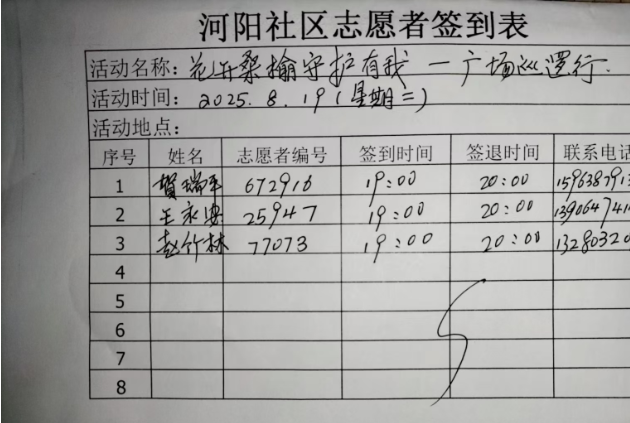 河阳社区志愿者签到表
活动名称：花开桑榆守护有我一广场巡逻行.
活动时间：2025.8.19(星期二)
活动地点：
序号 姓名 志愿者编号 签到时间 签退时间 联系电话
1 贺瑞平 672916 19:00 20:00
2 王永安 25947 19:00 20:00
3 赵竹林 77073 19:00 20:00 1328032
4
5
6
7
8